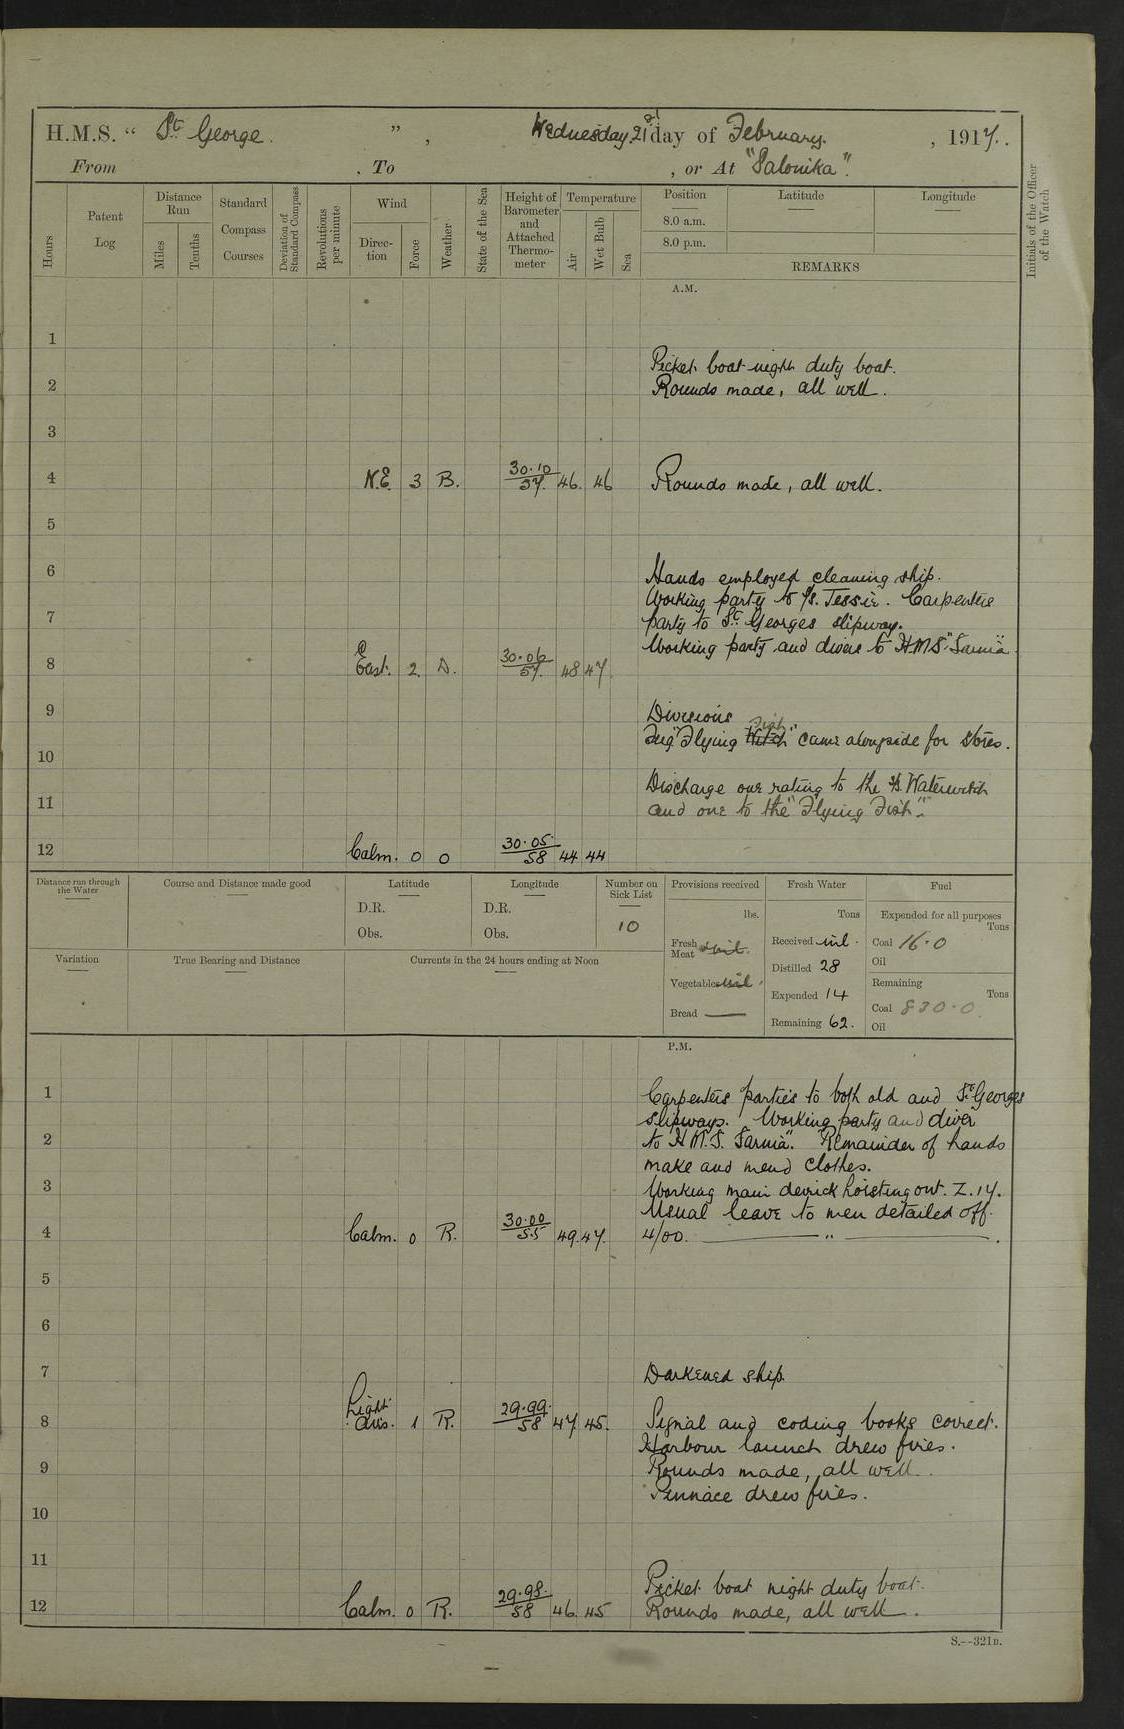 H.M.S. “ St George. ” , Wednesday 21st day of February. , 1917.
From , To , or At "Salonika".
Hours
Patent Log
Distance Run
Miles
Tenths
Standard Compass Courses
Deviation of Standard Compass
Revolutions per minute
Wind
Direction
Force
Weather
State of the Sea
Height of Barometer and Attached Thermometer
Temperature
Air
Wet Bulb
Sea
Position
8.0 a.m.
8.0 p.m.
Latitude
Longitude
REMARKS
Initials of the Officer of the Watch
A.M.
1
Picket boat night duty boat.
2 Rounds made, all well.
3
4 N.E. 3 B. 30.10/57 46. 46 Rounds made, all well.
5
6 Hands employed cleaning ship.
Working party to SS. Tessie. Carpenters
7 party to St Georges slipway.
Working party and divers to H.M.S. "Sarnia"
8 East. 2. D. 30.06/57. 48 47.
9 Divisions
Tug "Flying Witch Fish" came alongside for stores.
10
Discharge one rating to the SS. Waterwitch
11 and one to the "Flying Fish".
12 Calm. 0 0 30.05./58 44 44
Distance run through the Water
Course and Distance made good
Latitude
D.R.
Obs.
Longitude
D.R.
Obs.
Number on Sick List
10
Provisions received
lbs.
Fresh Meat nil.
Vegetables nil.
Bread —
Fresh Water
Tons
Received nil.
Distilled 28
Expended 14
Remaining 62.
Fuel
Expended for all purposes
Tons
Coal 16.0
Oil
Remaining
Tons
Coal 830.0.
Oil
Variation
True Bearing and Distance
Currents in the 24 hours ending at Noon
P.M.
1 Carpenters parties to both old and St Georges
slipways. Working party and diver
2 to H.M.S. Sarnia". Remainder of hands
make and mend clothes.
3 Working main derrick hoisting out. Z.17.
Usual leave to men detailed off.
4 Calm. 0 R. 30.00/55 49. 47. 4/00. — " —.
5
6
7 Darkened ship.
8 Light airs. 1 R. 29.99./58 47 45. Signal and coding books correct.
Harbour launch drew fires.
9 Rounds made, all well.
Pinnace drew fires.
10
11
Picket boat night duty boat.
12 Calm. 0 R. 29.98./58 46. 45 Rounds made, all well.
S.--321B.